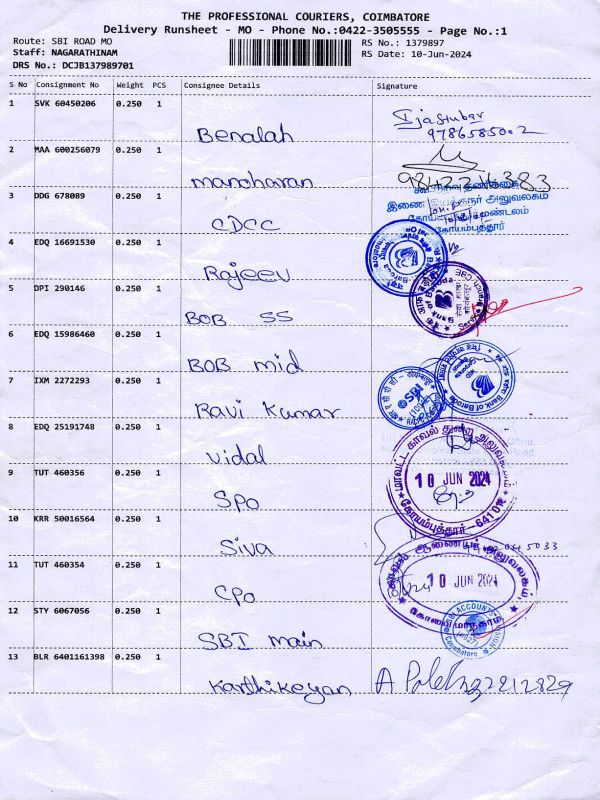 THE PROFESSIONAL COURIERS, COIMBATORE
Delivery Runsheet - MO - Phone No.:0422-3505555 - Page No.:1
Route: SBI ROAD MO RS No.: 1379897
Staff: NAGARATHINAM RS Date: 10-Jun-2024
DRS No.: DCJB137989701
S No Consignment No Weight PCS Consignee Details Signature
1 SVK 60450206 0.250 1 Benalah
9786585002
2 MAA 600256079 0.250 1 manoharan
9842214383
3 DDG 678089 0.250 1 CDCC
இணை இயக்குநர் அலுவலகம்
கோயம்புத்தூர்
4 EDQ 16691530 0.250 1 Rajeev
5 DPI 290146 0.250 1 BOB SS
Bank of Baroda
6 EDQ 15986460 0.250 1 BOB mid
Bank of Baroda
7 IXM 2272293 0.250 1 Ravi Kumar
SBI
8 EDQ 25191748 0.250 1 Vidal
9 TUT 460356 0.250 1 SPO
மாவட்ட காவல் துறை அலுவலகம்
10 JUN 2024
கோயம்புத்தூர்-641018
10 KRR 50016564 0.250 1 Siva
11 TUT 460354 0.250 1 CPO
காவல் ஆணையர் அலுவலகம்,
10 JUN 2024
கோவை மாநகரம்
12 STY 6067056 0.250 1 SBI main
13 BLR 6401161398 0.250 1 Karthikeyan